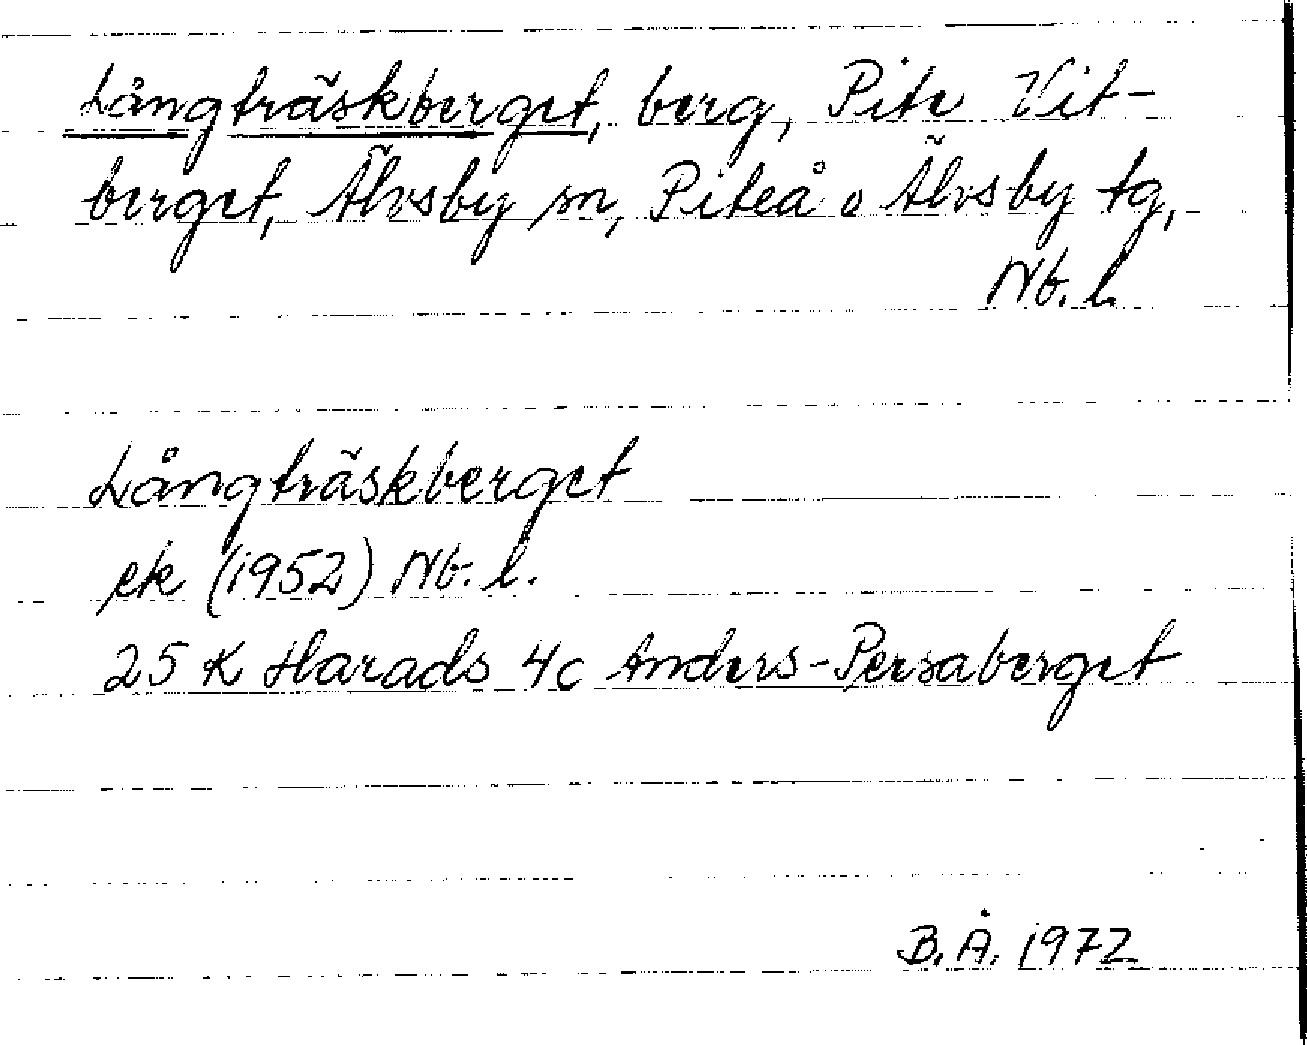 Långträskberget, berg, Pite Vit-
berget, Älvsby sn, Piteå o Älvsby tg,
Nb. l.
Långträskberget
ek (1952) Nb. l.
25 K Harads 4c Anders-Persaberget
B. Å. 1972